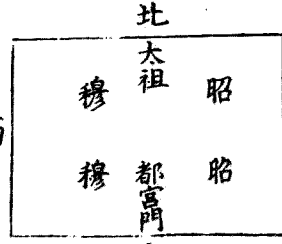 北
太祖
昭
穆
昭
穆
都宮門